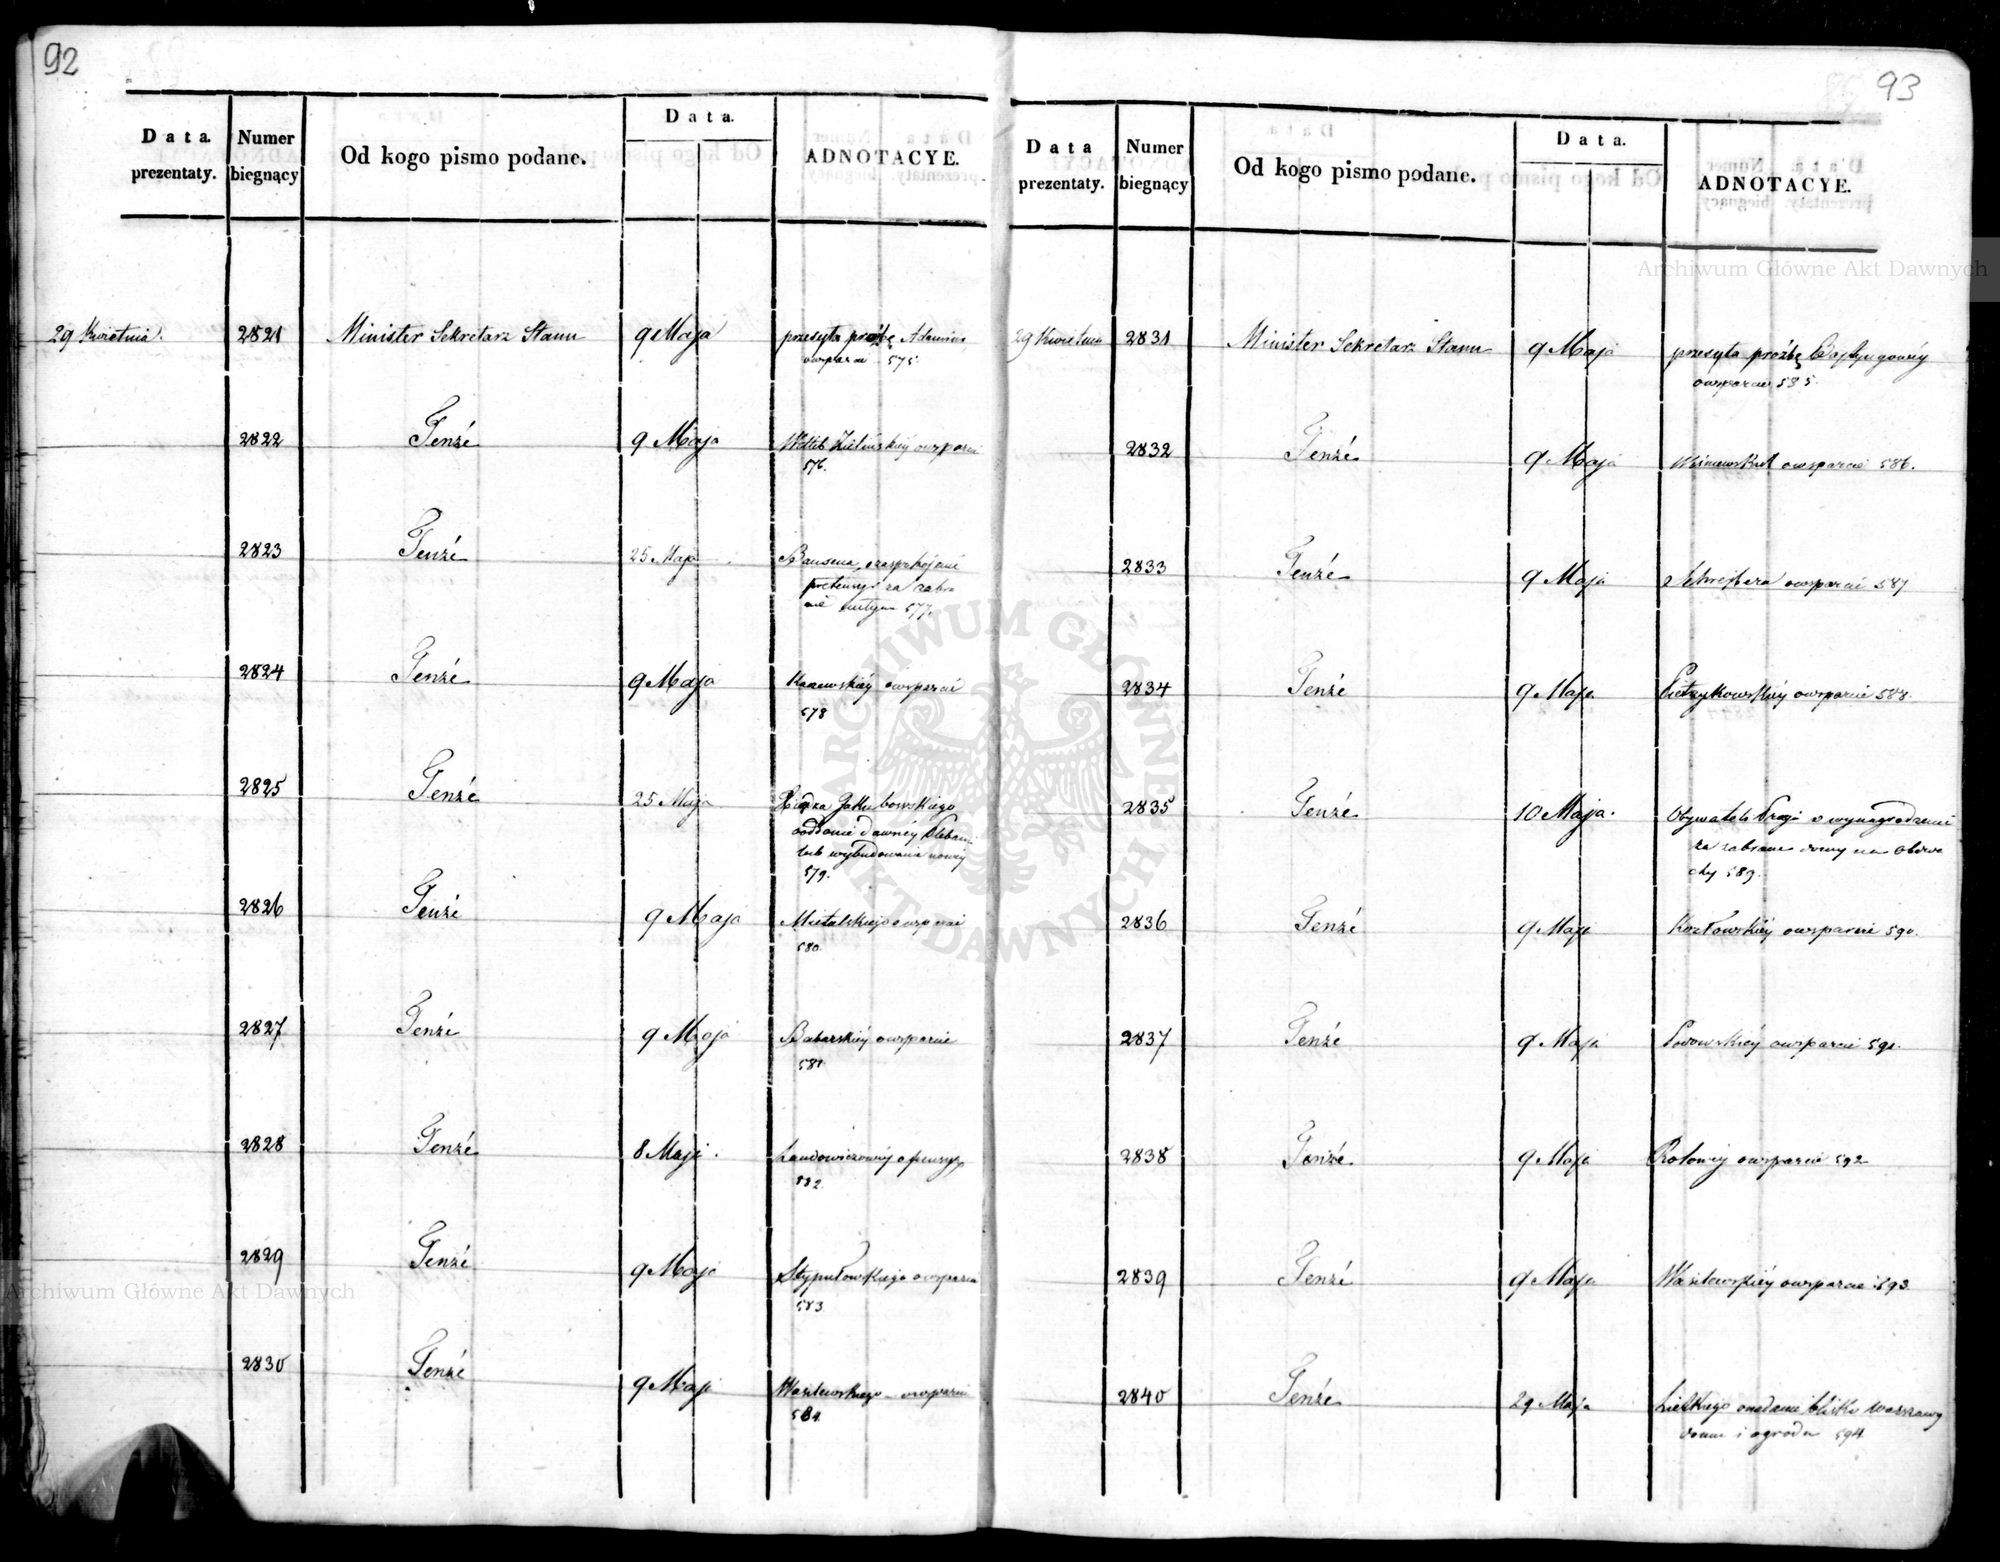 92
Data prezentaty. Numer biegnący Od kogo pismo podane. Data. ADNOTACYE.
29 Kwietnia. 2821 Minister Sekretarz Stanu 9 Maja przesyła prożbę
owsparcie 575.
2822 Tenże 9 Maja Zielińskiéy owsparcie
576.
2823 Tenże 25 Maja
za zabra
nie 577.
2824 Tenże 9 Maja owsparcie
578
2825 Tenże 25 Maja Xiędza Jakubowskiego
oddanie dawnéy
lub wybudowanie nowéy
579.
2826 Tenże 9 Maja owsparcie
580.
2827 Tenże 9 Maja Babarskiéy owsparcie
581
2828 Tenże 8 Maja.
582
2829 Tenże 9 Maja Stypułowskiego owsparcie
583
2830 Tenże 9 Maja Wasilewskiego owsparcie
584.
93
Data prezentaty. Numer biegnący Od kogo pismo podane. Data. ADNOTACYE.
29 Kwietnia 2831 Minister Sekretarz Stanu 9 Maja przesyła prożbę
owsparcie 585.
2832 Tenże 9 Maja owsparcie 586.
2833 Tenże 9 Maja owsparcie 587
2834 Tenże 9 Maja owsparcie 588.
2835 Tenże 10 Maja. Obywateli Pragi o wynagrodzenie
za zabrane domy na
589.
2836 Tenże 9 Maja Kozłowskiéy owsparcie 590.
2837 Tenże 9 Maja owsparcie 591.
2838 Tenże 9 Maja owsparcie 592
2839 Tenże 9 Maja Wasilewskiéy owsparcie 593
2840 Tenże 29 Maja onadanie blisko Warszawy
domu i ogrodu 594
Archiwum Główne Akt Dawnych
ARCHIWUM GŁÓWNE AKT DAWNYCH
Archiwum Główne Akt Dawnych